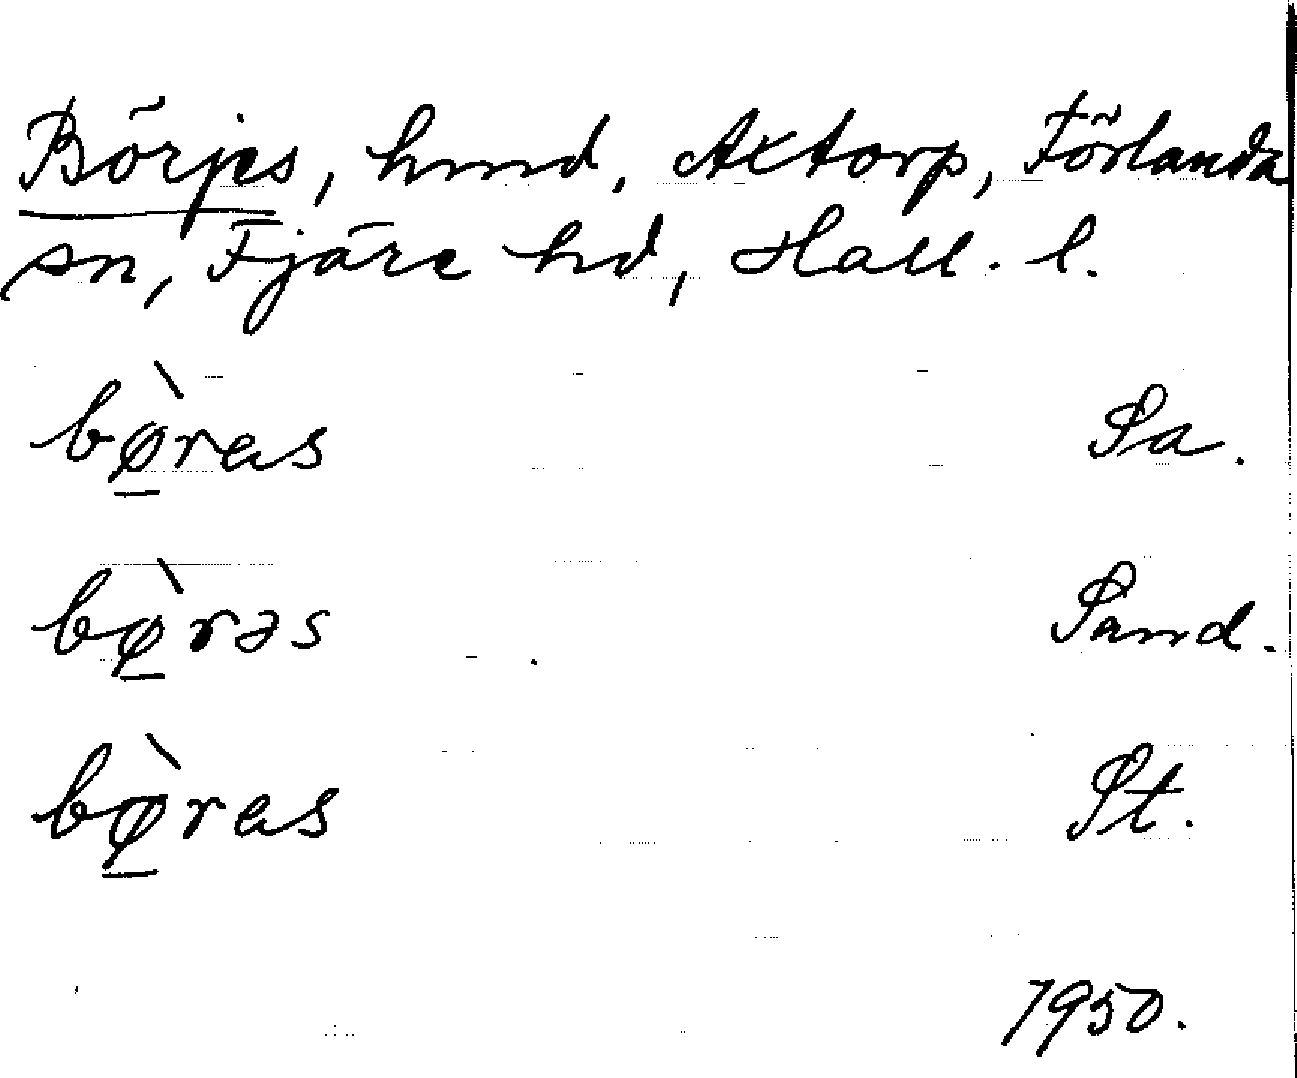 Börjes, hmd, Axtorp, Förlanda
sn, Fjäre hd, Hall. l.
bø̀ras Sa.
bø̀rəs Sand.
bø̀ras St.
1950.